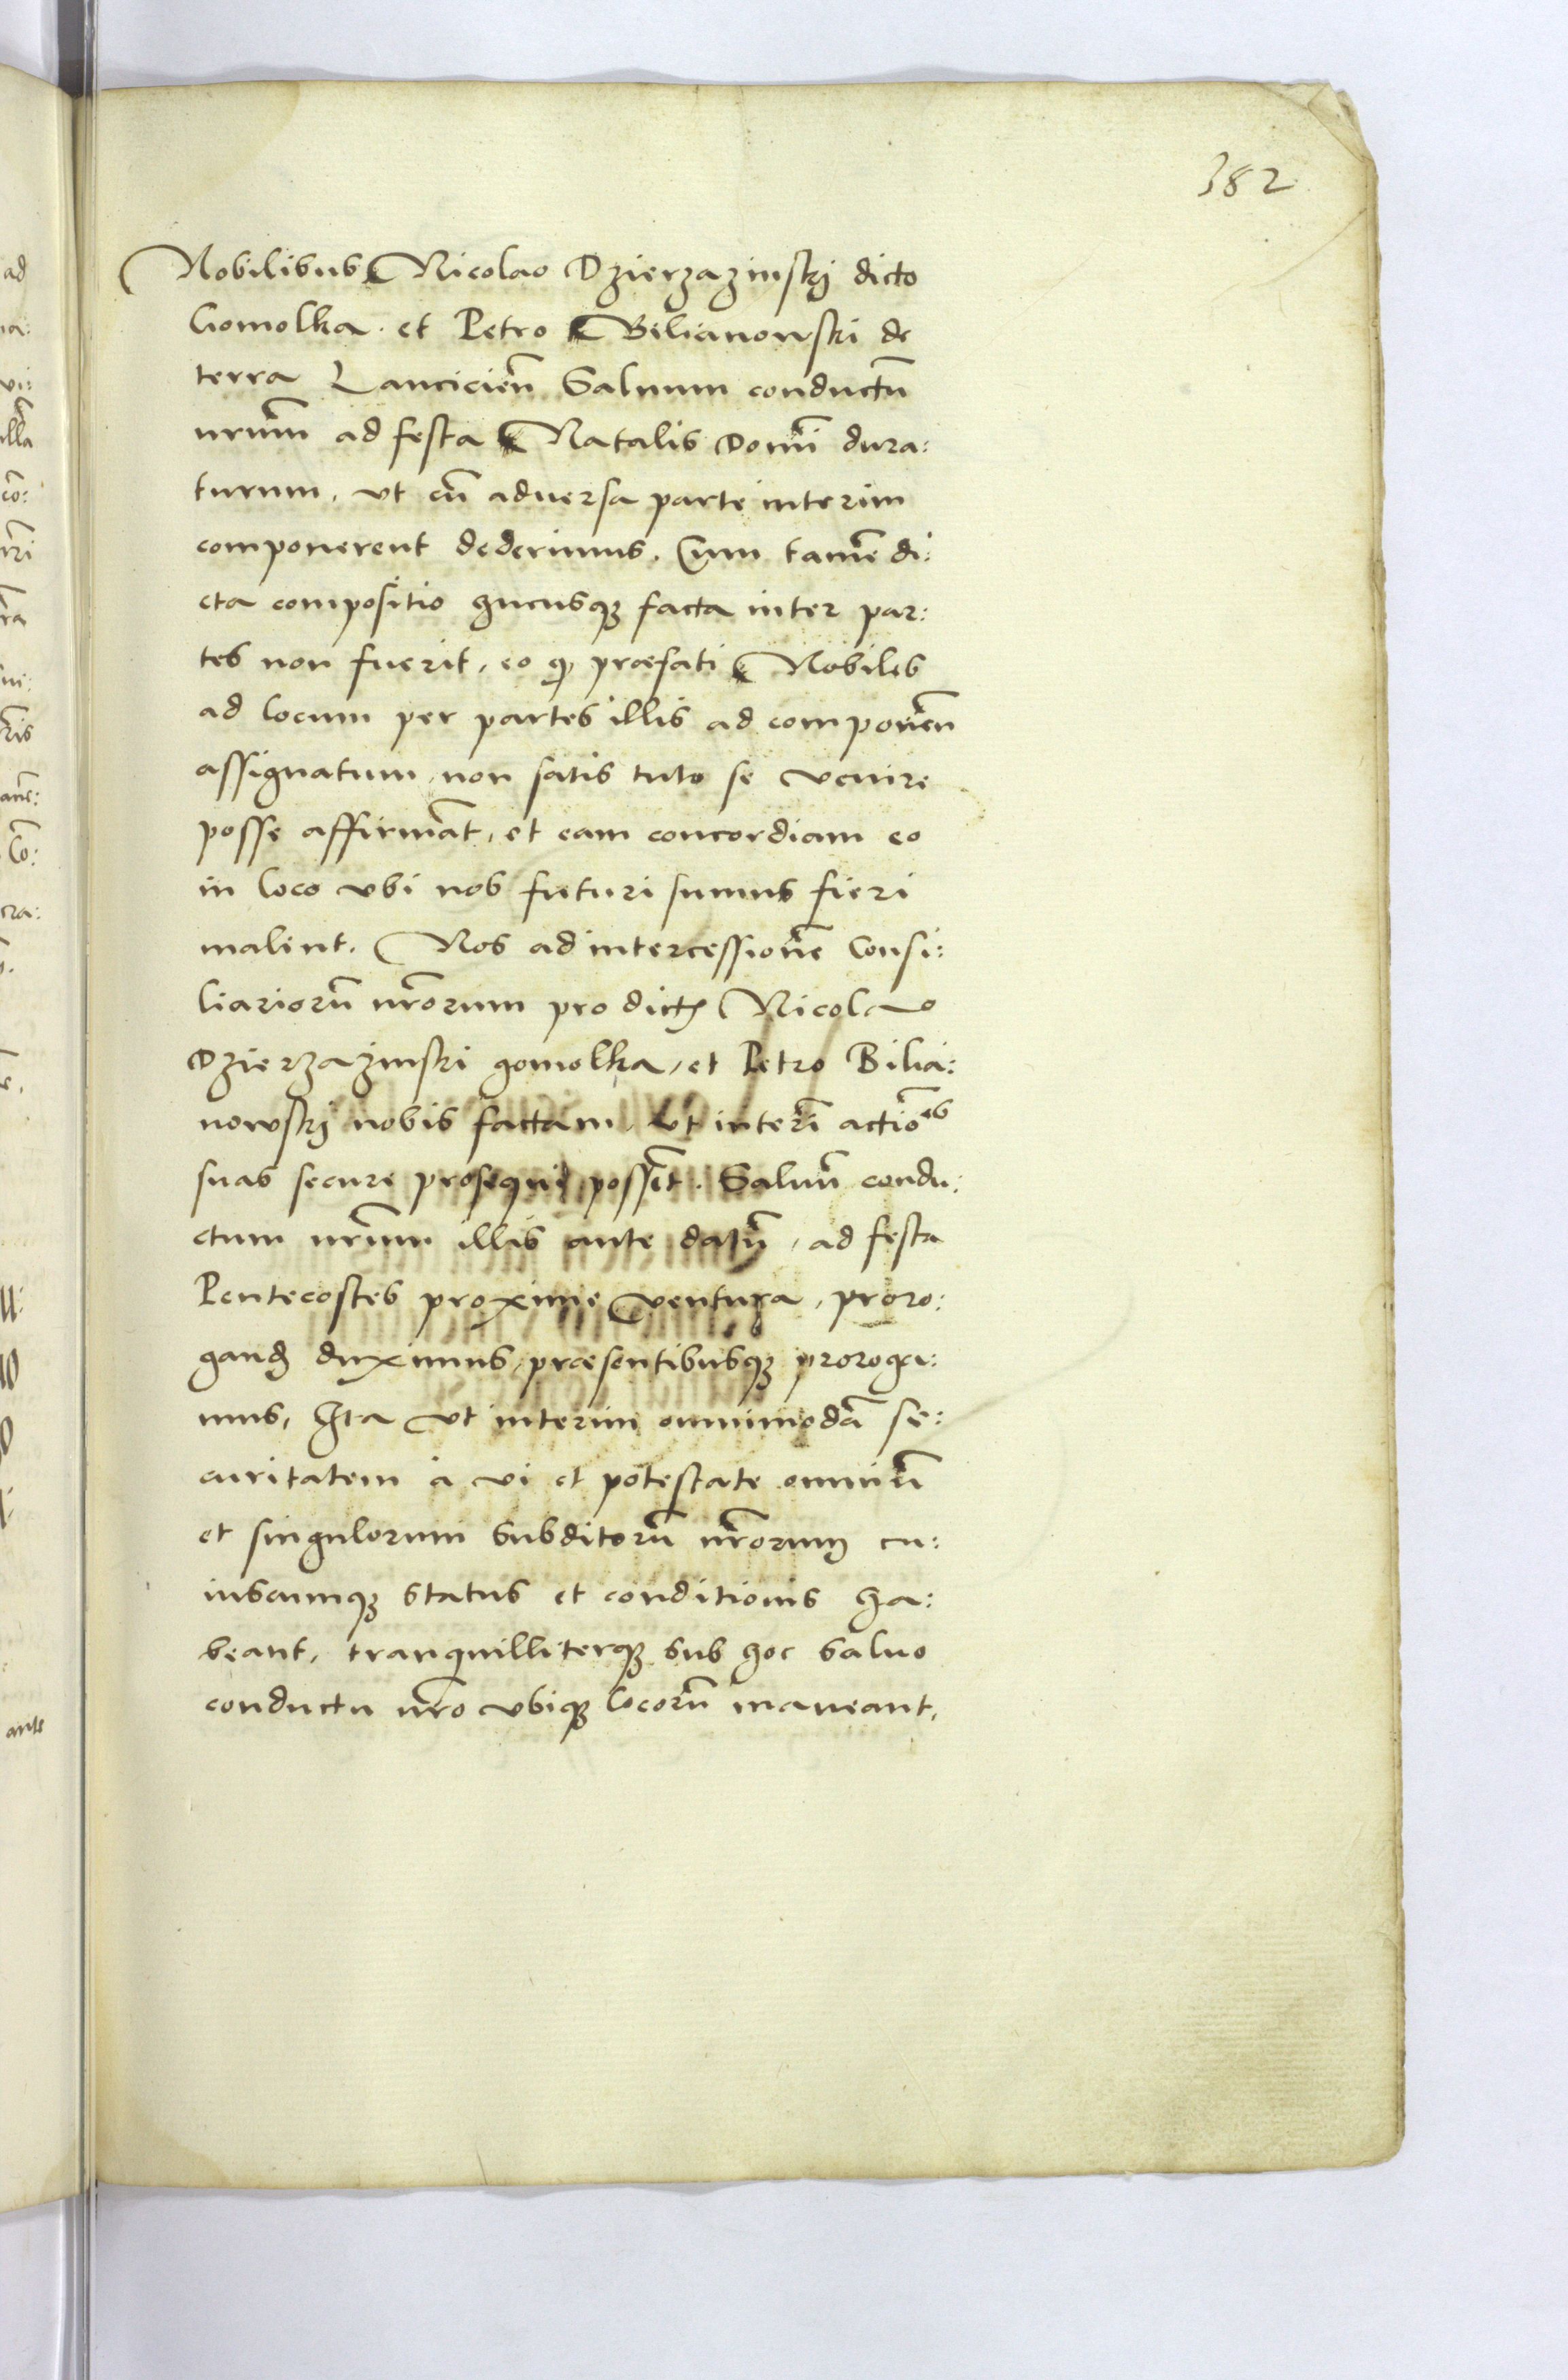 382
Nobilibus Nicolao Dzierzazinskj dicto
Gomolka. et Petro Bilianowski de
terra Lancicien̄ Saluum conductū
nr̄um ad festa Natalis Domı̄ dura:
turum, vt cū aduersa parte interim
componerent dederimus, Cum tamē di:
cta compositio hucusqꝫ facta inter par:
tes non fuerit, eo ꝙ præfati Nobiles
ad locum per partes illis ad componen̄
assignatum, non satis tuto se venire
posse affirmāt, et eam concordiam eo
in loco vbi nos futuri sumus fieri
malint. Nos ad intercessionē Consi:
liariorū nr̄orum pro dictꝭ Nicolao
Dzierzazinski gomolka, et Petro Bilia:
nowskj nobis factam, Vt interı̄ actiōes
suas secure prosequi possēt. Saluū condu:
ctum nr̄um illis ante datū, ad festa
Pentecostes proxime ventura, proro:
gand̄ duximus, præsentibusqꝫ proroga:
mus, Ita vt interim omnimodā se:
curitatem à vi et potestate omniū
et singulorum subditorū nr̄orum cu:
iuscumqꝫ status et conditionis ha:
beant, tranquilliterqꝫ sub hoc saluo
conductu nr̄o vbiqꝫ locorū maneant,